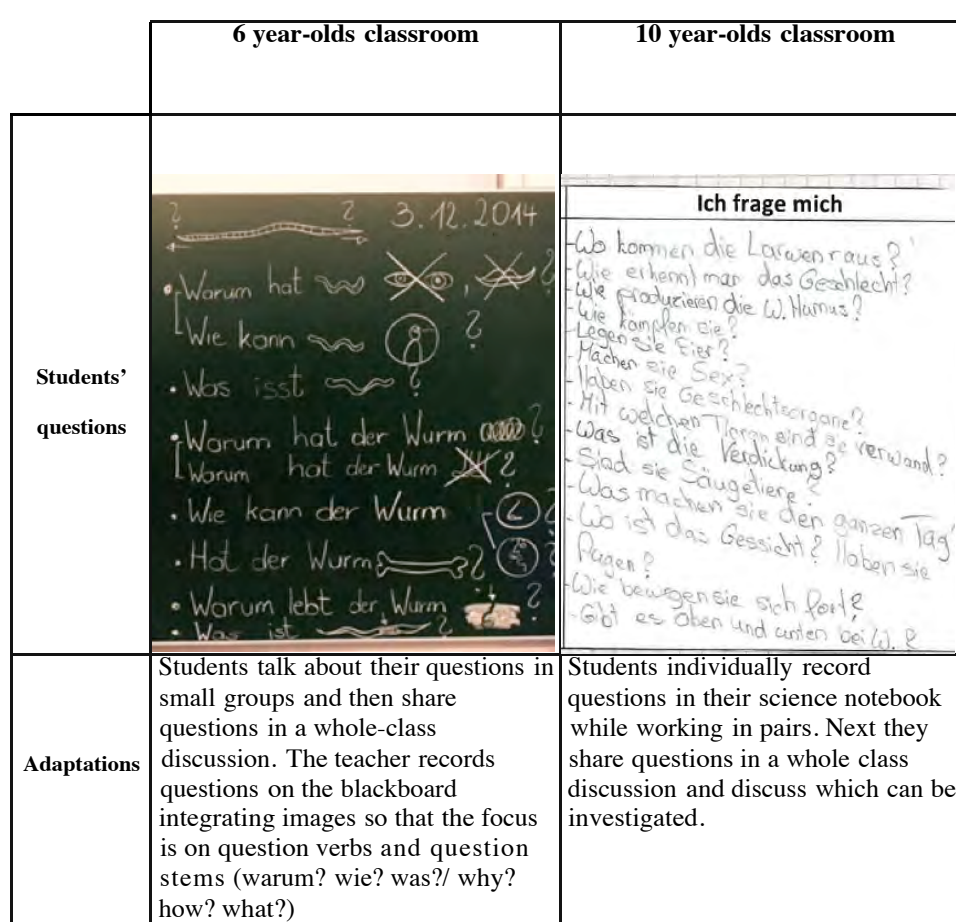 6 year-olds classroom
10 year-olds classroom
Students’
questions
? ? 3.12.2014
• Warum hat , ?
Wie kann ?
• Was isst ?
• Warum hat der Wurm ?
Warum hat der Wurm ?
• Wie kann der Wurm ?
• Hat der Wurm ?
• Warum lebt der Wurm ?
• Was ist ?
Ich frage mich
-Wo kommen die Larven raus?
-Wie erkennt man das Geschlecht?
-Wie produzieren die W. Humus?
-Wie kämpfen sie?
-Legen sie Eier?
-Machen sie Sex?
-Haben sie Geschlechtsorgane?
-Mit welchen Tieren sind sie verwand?
-Was ist die Verdickung?
-Sind sie Säugetiere?
-Was machen sie den ganzen Tag?
-Wo ist das Gessicht? Haben sie
?
-Wie bewegen sie sich fort?
-Gibt es oben und unten bei W.?
Adaptations
Students talk about their questions in
small groups and then share
questions in a whole-class
discussion. The teacher records
questions on the blackboard
integrating images so that the focus
is on question verbs and question
stems (warum? wie? was?/ why?
how? what?)
Students individually record
questions in their science notebook
while working in pairs. Next they
share questions in a whole class
discussion and discuss which can be
investigated.